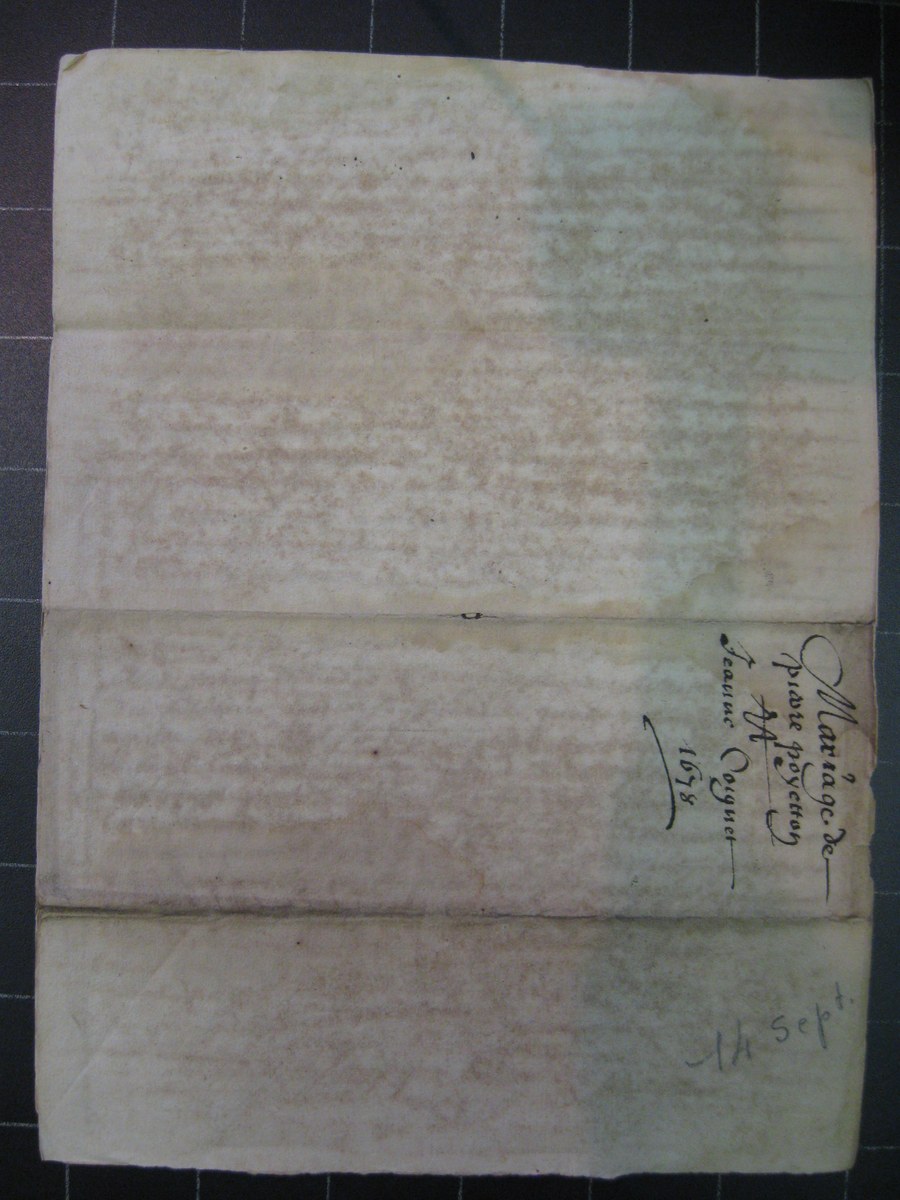 Mariage de
pierre poyetton
&
Jeanne Coignet
1678
14 Sept